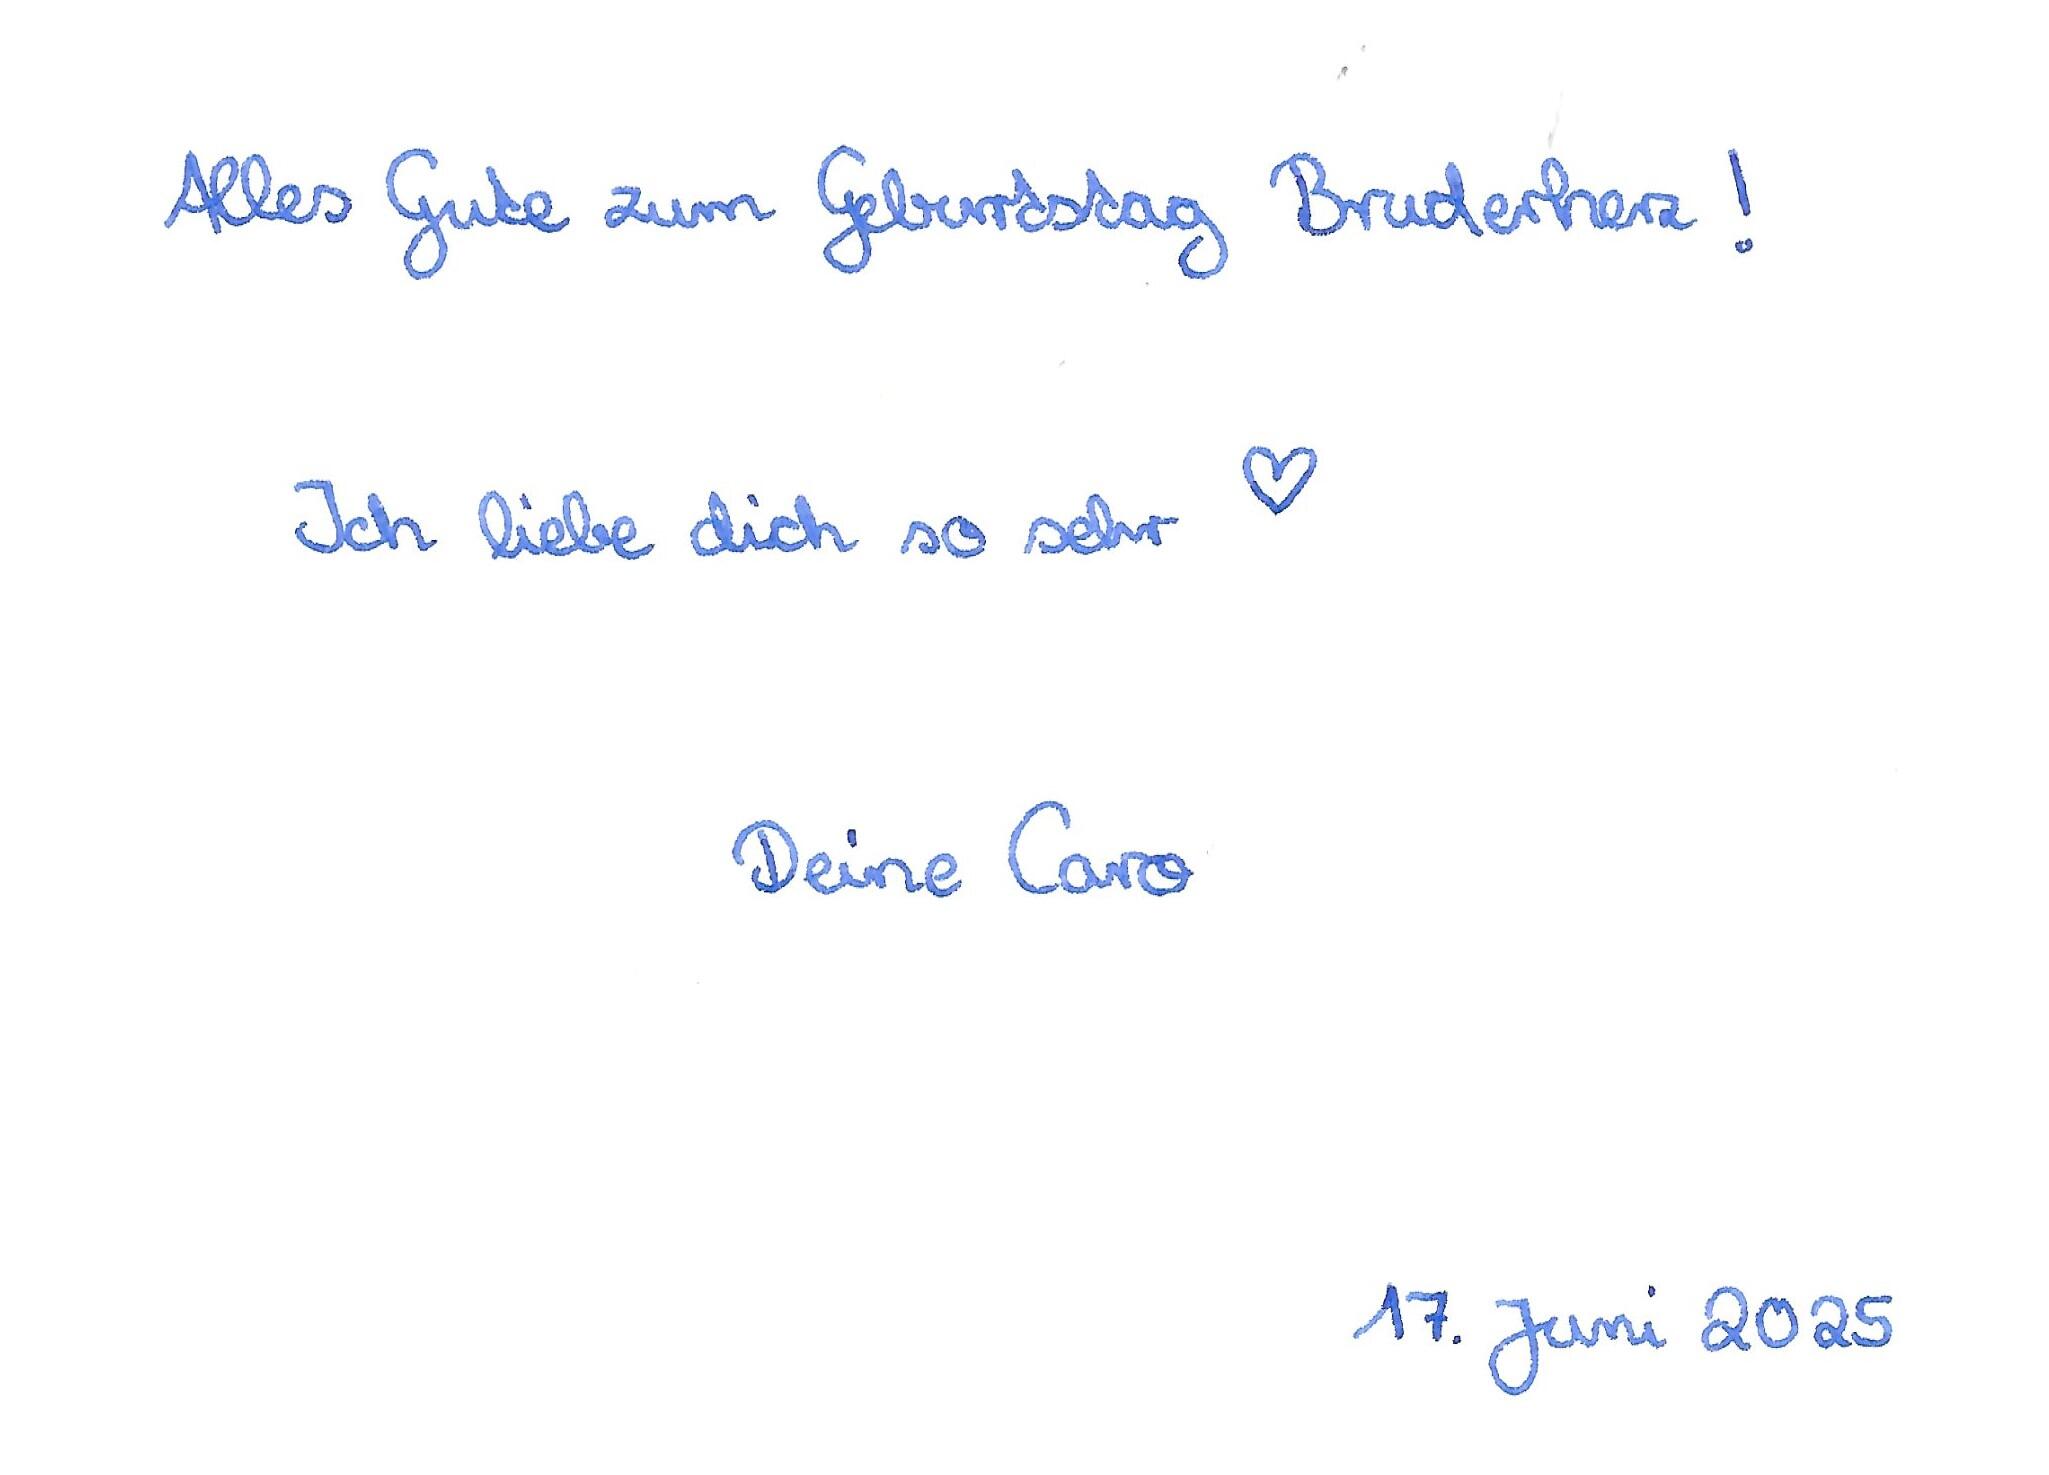 Alles Gute zum Geburtstag Bruderherz!
Ich liebe dich so sehr ♡
Deine Caro
17. Juni 2025